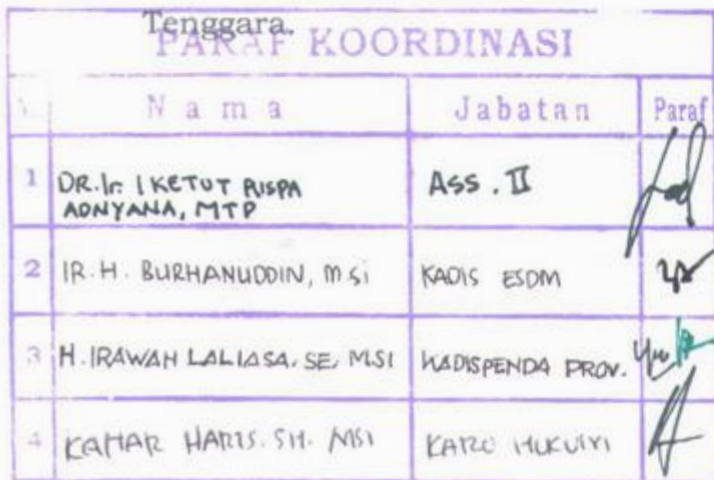 Tenggara.
PARAF KOORDINASI
Nama Jabatan Paraf
1 DR. Ir. I KETUT PUSPA ADNYANA, MTP ASS. II
2 IR. H. BURHANUDDIN, M.Si KADIS ESDM
3 H. IRAWAN LALIASA, SE, MSI KADISPENDA PROV.
4 KAMAR HARIS. SH. MSI KARO HUKUM